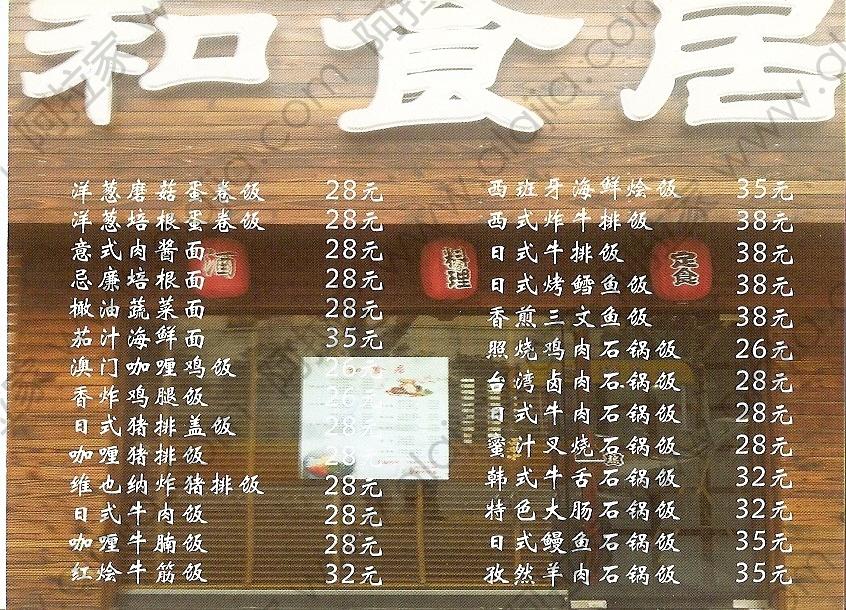 和食居
洋葱磨菇蛋卷饭 28元
洋葱培根蛋卷饭 28元
意式肉酱面 28元
忌廉培根面 28元
橄油蔬菜面 28元
茄汁海鲜面 35元
澳门咖喱鸡饭 26元
香炸鸡腿饭 26元
日式猪排盖饭 28元
咖喱猪排饭 28元
维也纳炸猪排饭 28元
日式牛肉饭 28元
咖喱牛腩饭 28元
红烩牛筋饭 32元
西班牙海鲜烩饭 35元
西式炸牛排饭 38元
日式牛排饭 38元
日式烤鳕鱼饭 38元
香煎三文鱼饭 38元
照烧鸡肉石锅饭 26元
台湾卤肉石锅饭 28元
日式牛肉石锅饭 28元
蜜汁叉烧石锅饭 28元
韩式牛舌石锅饭 32元
特色大肠石锅饭 32元
日式鳗鱼石锅饭 35元
孜然羊肉石锅饭 35元
酒
料理
定食
阿拉家 www.alajia.com